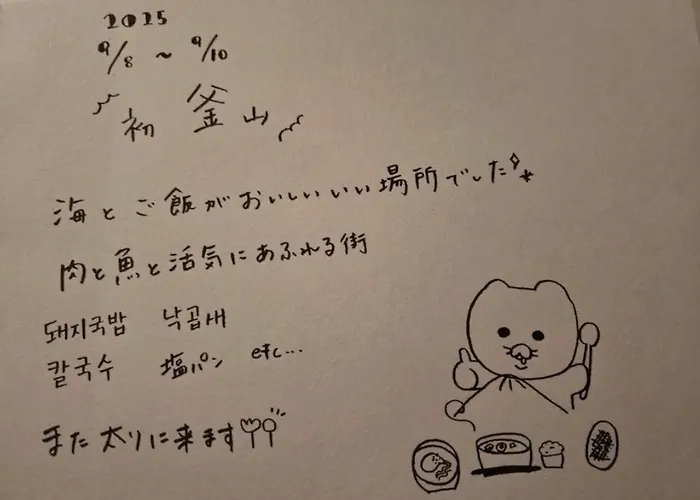 2025
9/8 ~ 9/10
初 釜山
海とご飯がおいしいいい場所でした
肉と魚と活気にあふれる街
돼지국밥 낙곱새
칼국수 塩パン etc...
また太りに来ます